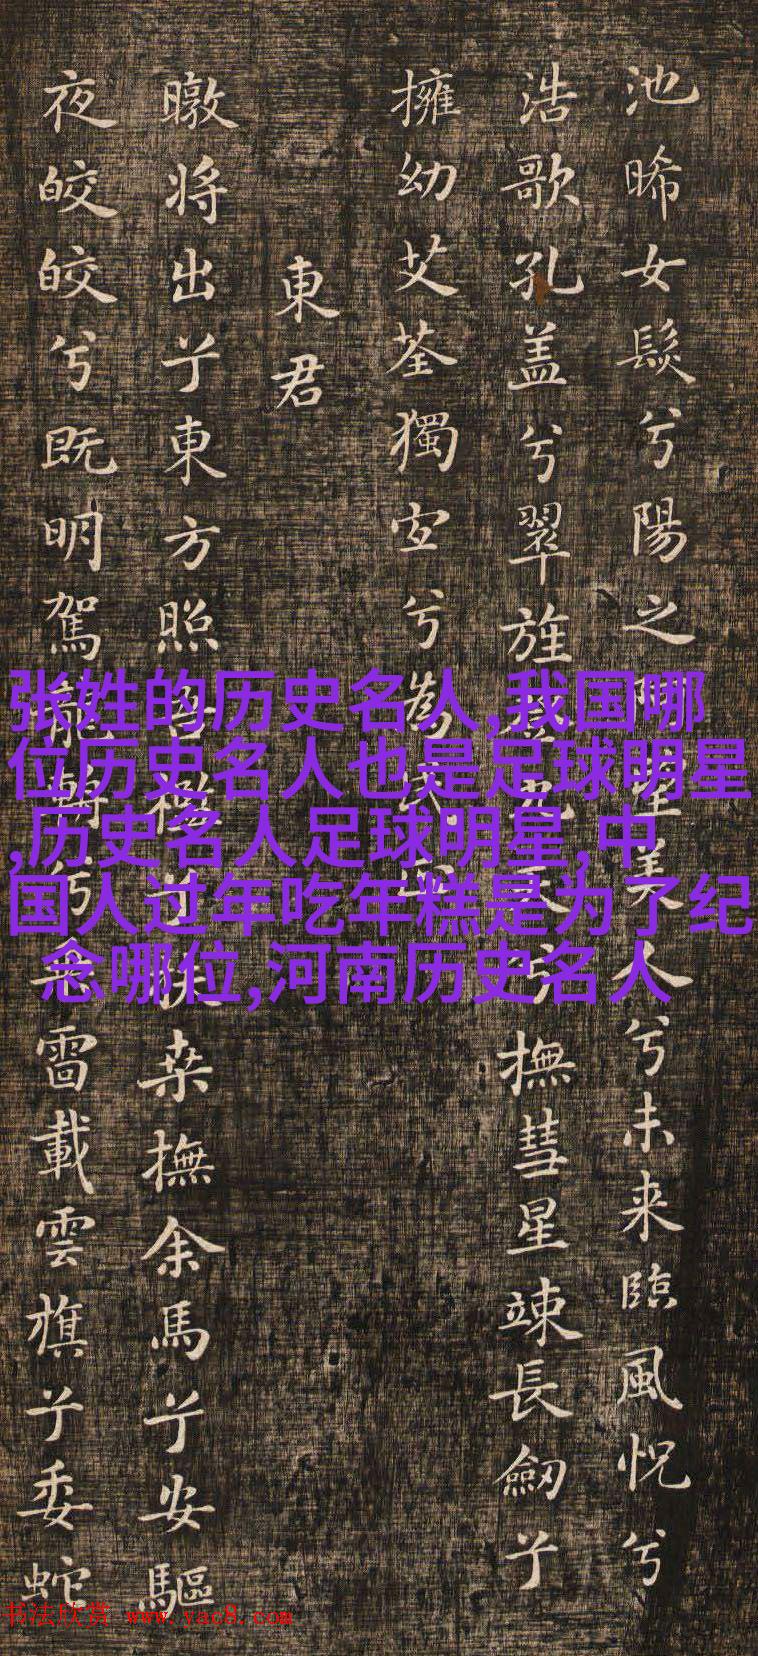 池晞女髮兮陽之望美人兮未来臨風怳兮
浩歌孔盖兮翠旌登九天兮撫彗星竦長劒兮
擁幼艾荃獨宜兮為民正
東君
暾将出兮東方照吾檻兮扶桒撫余馬兮安驅
夜皎皎兮既明駕龍輈兮乘雷載雲旗兮委蛇
张姓的历史名人,我国哪
位历史名人也是足球明星
,历史名人足球明星,中
国人过年吃年糕是为了纪
念哪位,河南历史名人
书法欣赏 www.yac8.com